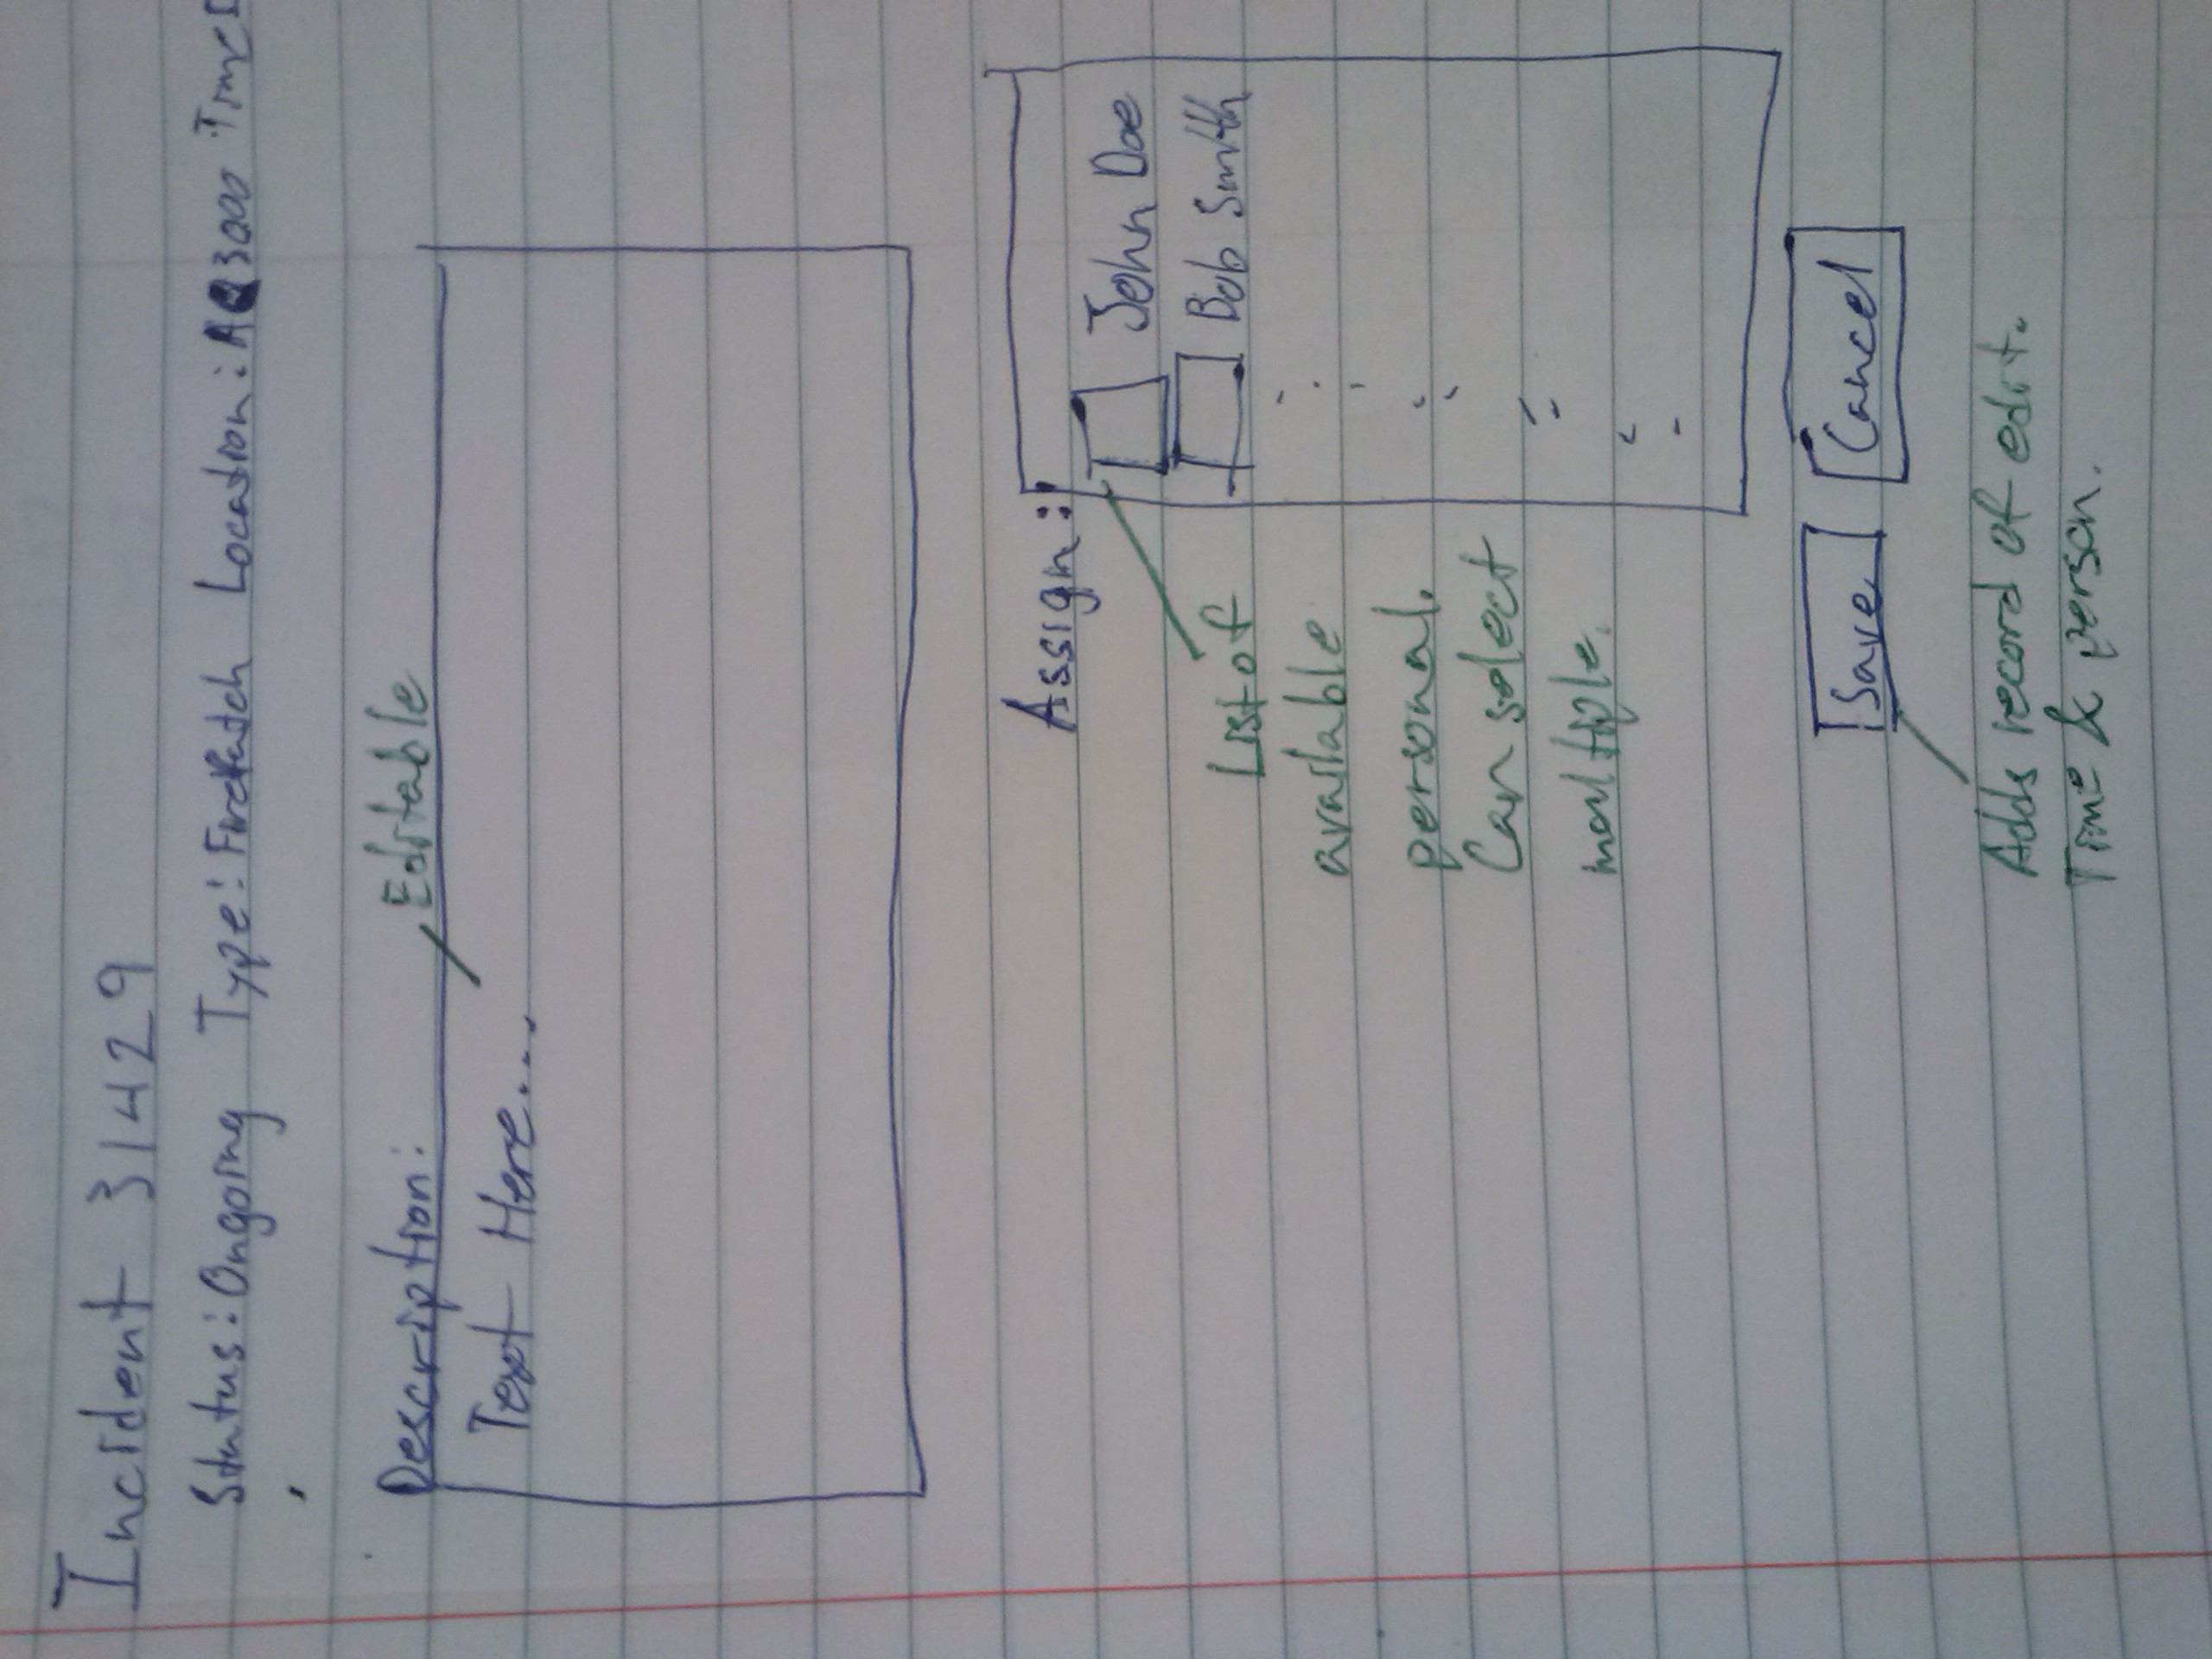 Incident 31429
Status: Ongoing Type: Location: Time
Description: Editable
Text Here....
Assign:
John Doe
Bob Smith
List of
available
personal.
Can select
multiple.
Save Cancel
Adds record of edit.
Time & person.